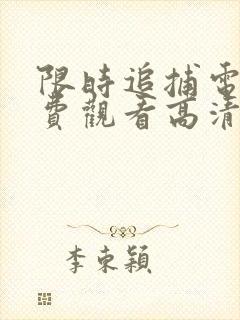 限時追捕電
費觀看高清
李東穎